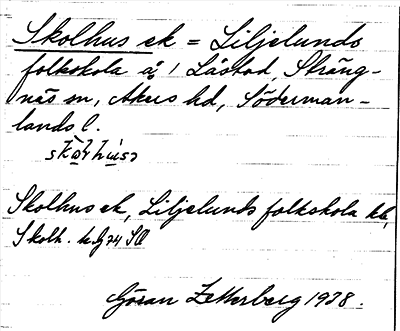 Skolhus ek = Liljelunds
folkskola å / Låstad, Sträng-
näs sn, Åkers hd, Söderman-
lands l.
Skolhus ek, Liljelunds folkskola
Skolh.
Göran Zetterberg 1938.